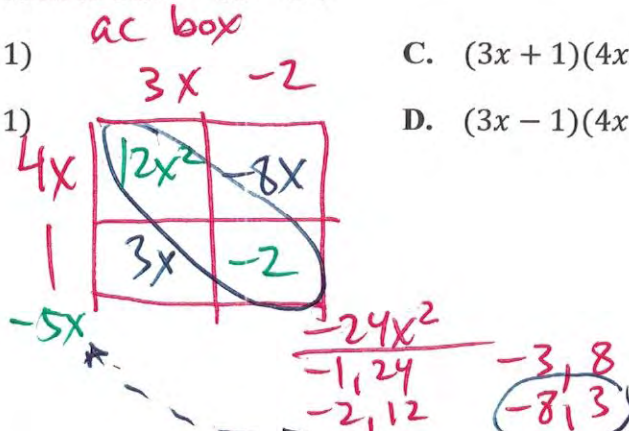 ac box
1)
C. (3x + 1)(4x
3x -2
1)
D. (3x − 1)(4x
4x 12x² -8x
1 3x -2
-5x
-24x²
-1, 24 -3, 8
-2, 12 -8, 3